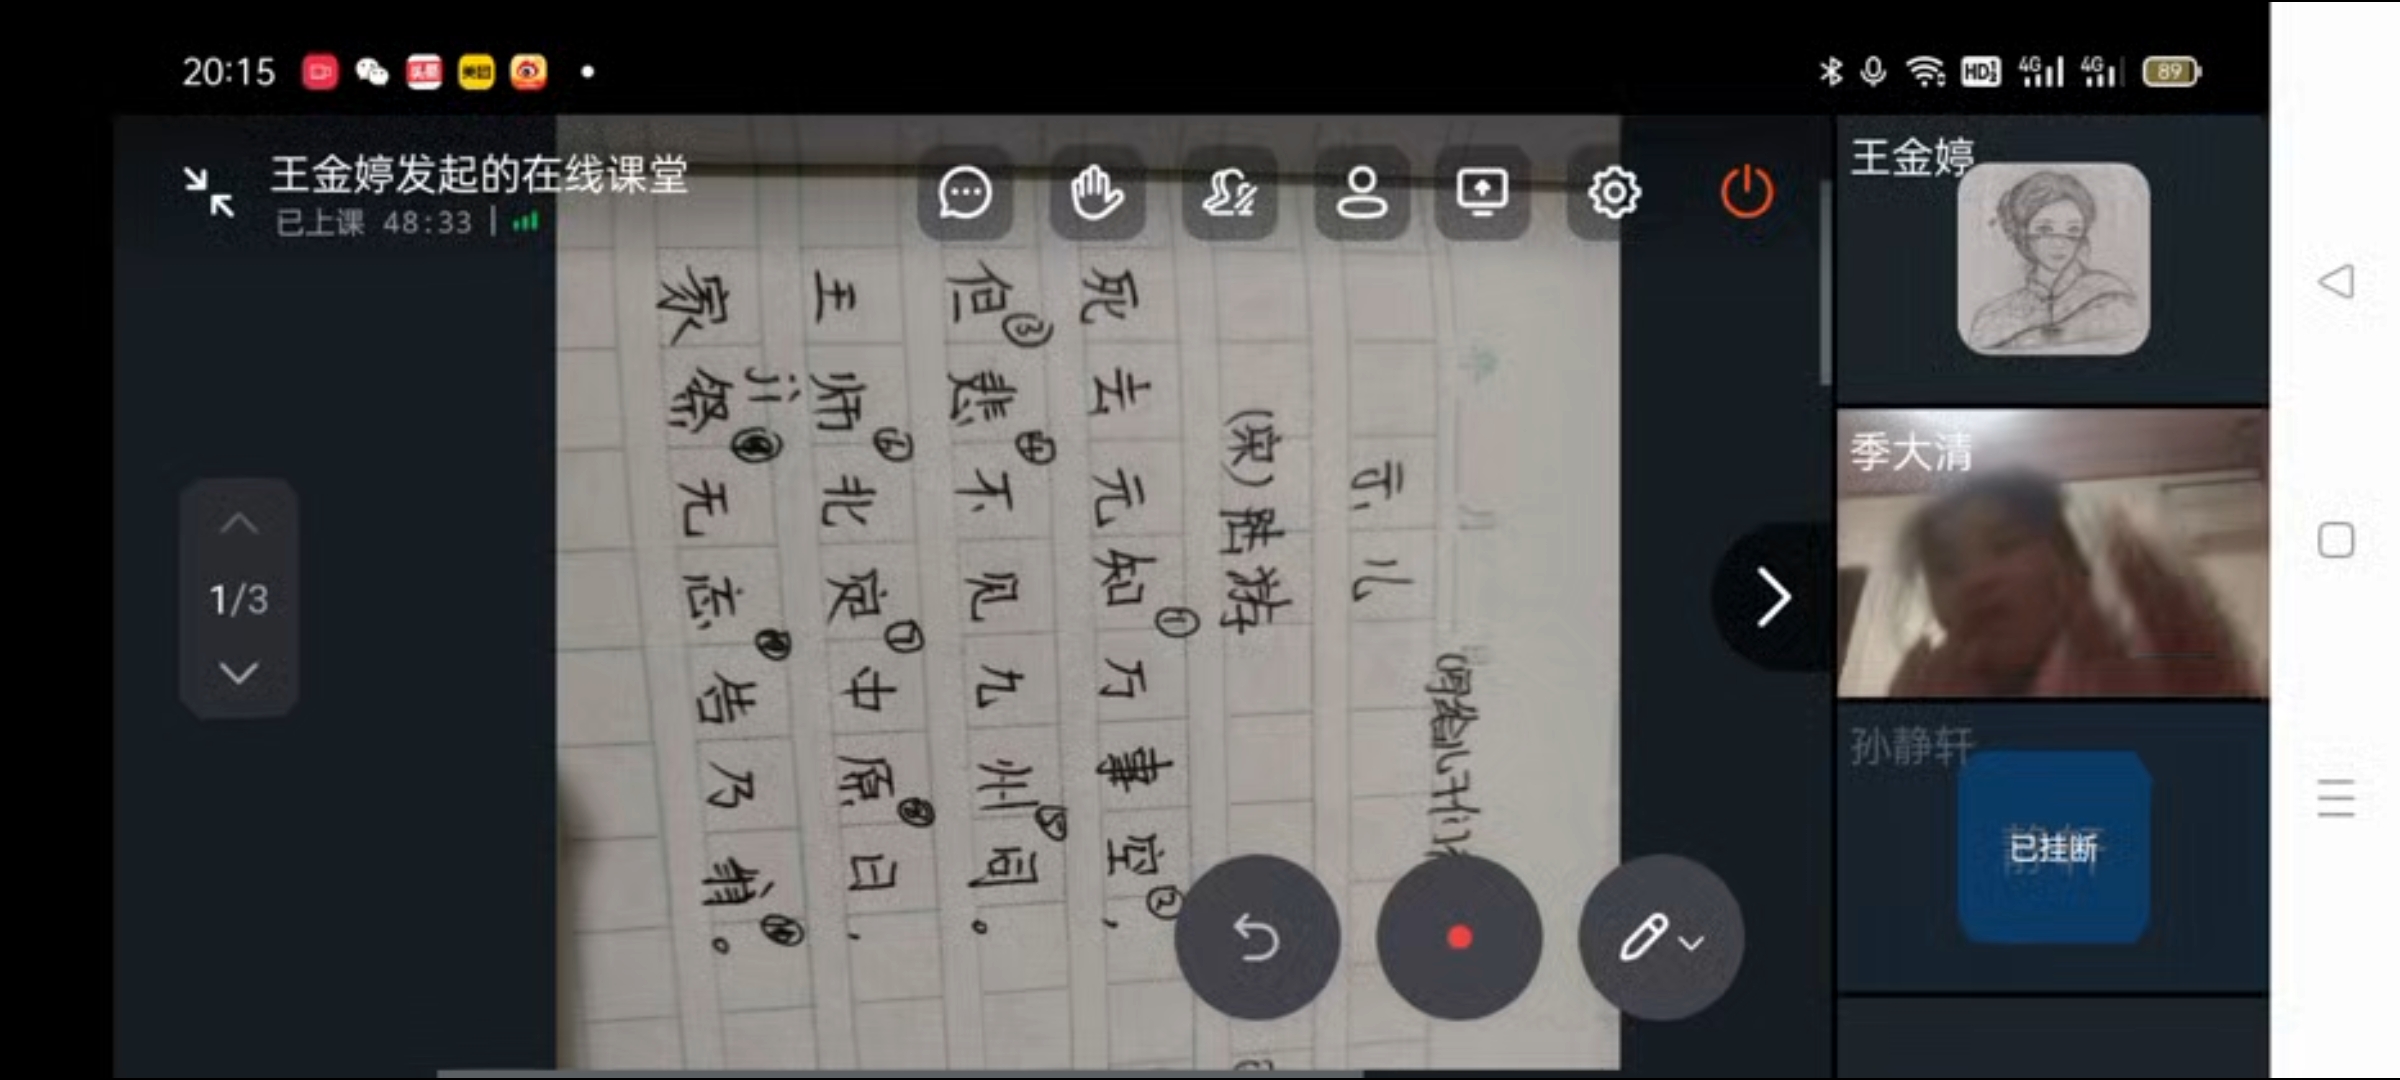 20:15
头条
美团
HD
4G
4G
89
王金婷发起的在线课堂
已上课 48:33
1/3
写给儿子们
示儿
(宋)陆游
死去元知①万事空②,
但③悲④不见九州⑤同。
王师⑥北定⑦中原⑧日,
jì
家祭⑨无忘⑩告乃翁。
王金婷
季大清
孙静轩
静轩
已挂断